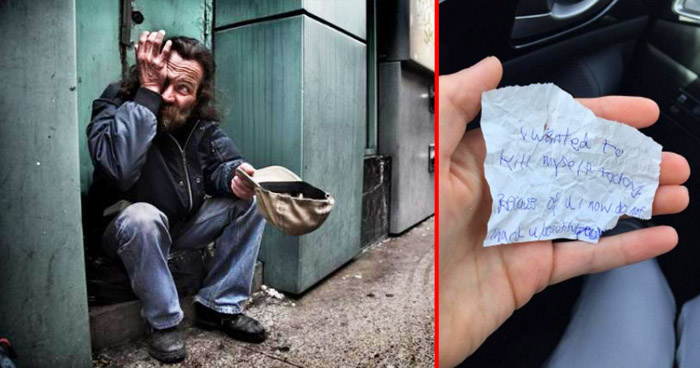 i wanted to
kill myself today
Because of u i now do not
thank u